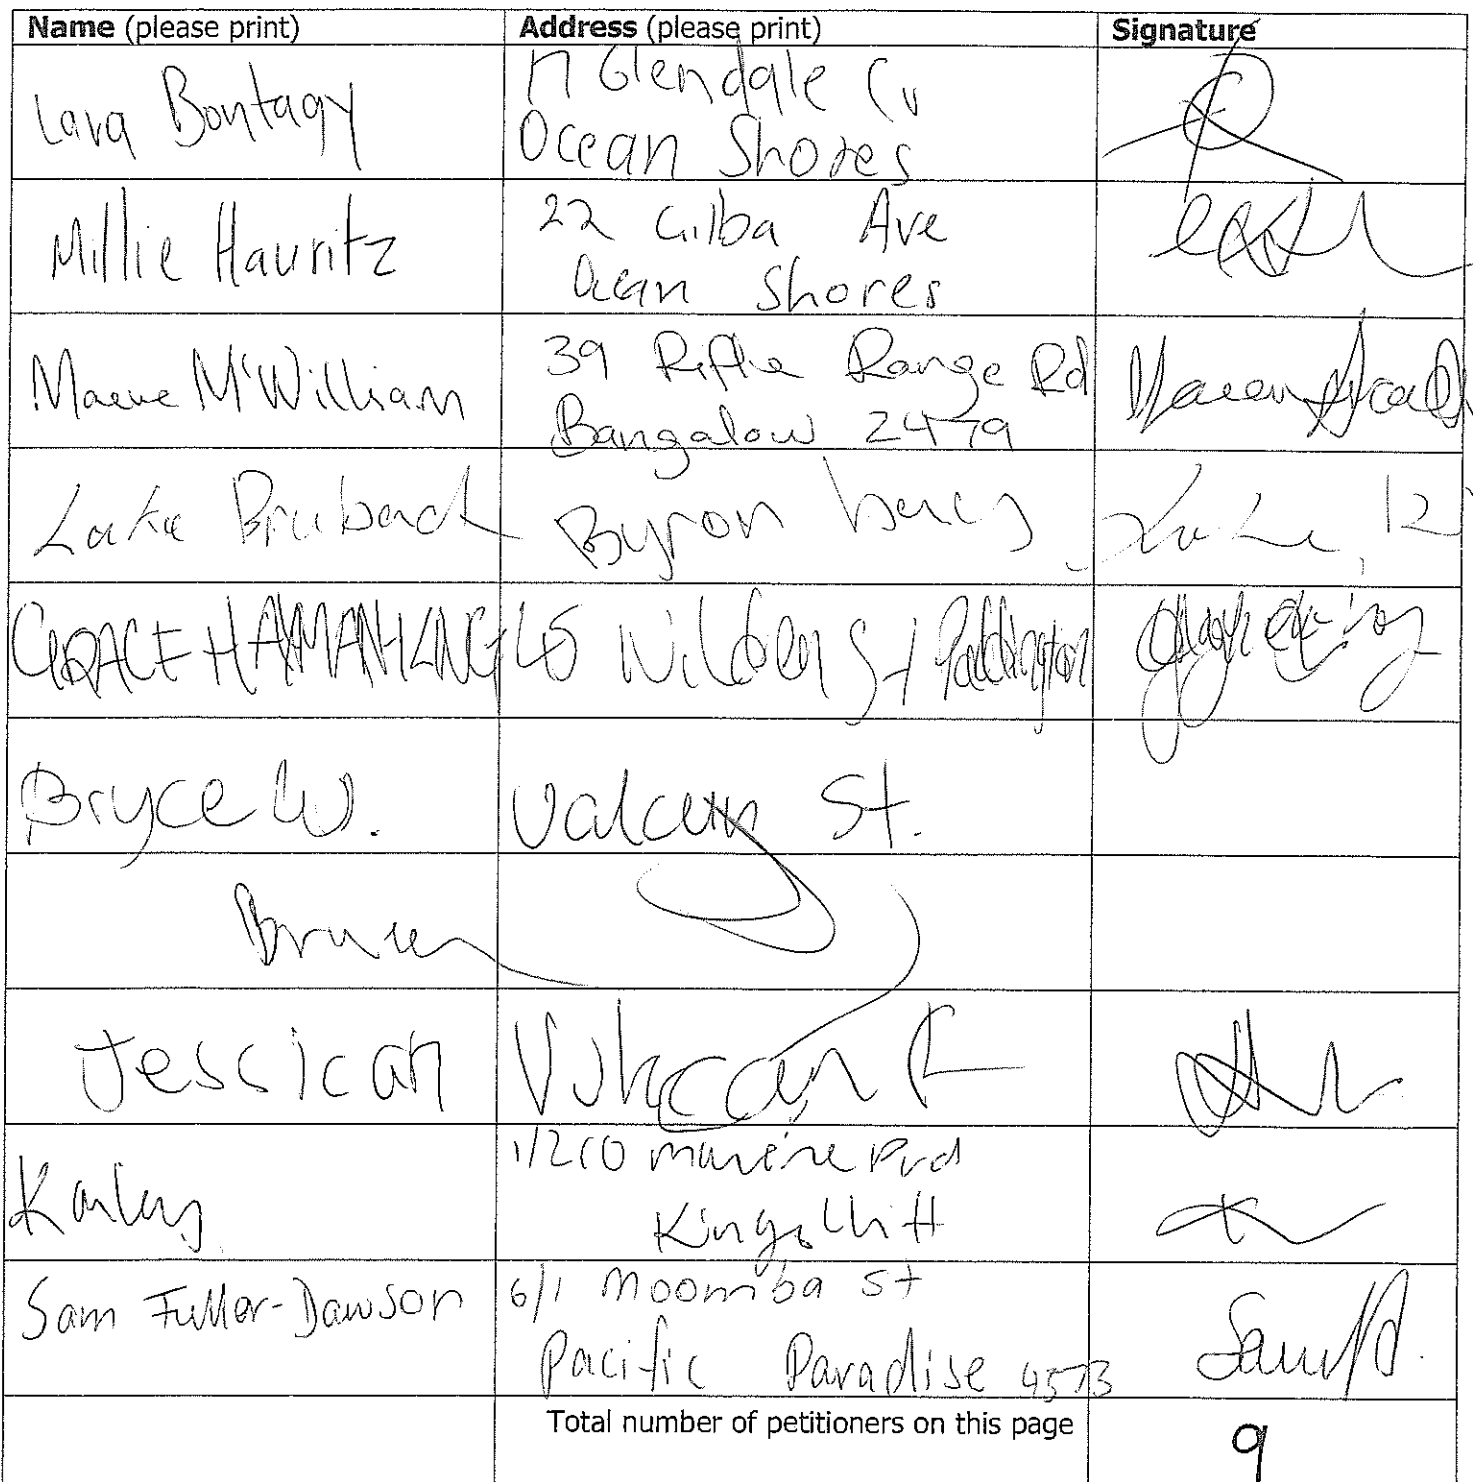 Name (please print) Address (please print) Signature
Lara Bontagy 17 Glendale Cv
Ocean Shores
Millie Hauritz 22 Gilba Ave
Ocean Shores
Maeve McWilliam 39 Rifle Range Rd
Bangalow 2479
Byron
GRACE HAMANN-KING 45 Wilden St Paddington
Bryce W. Valcun St.
Jessicah
Karley 1/210 marine Prd
Kingscliff
Sam Fuller-Dawson 6/1 Moomba St
Pacific Paradise 4573
Total number of petitioners on this page 9